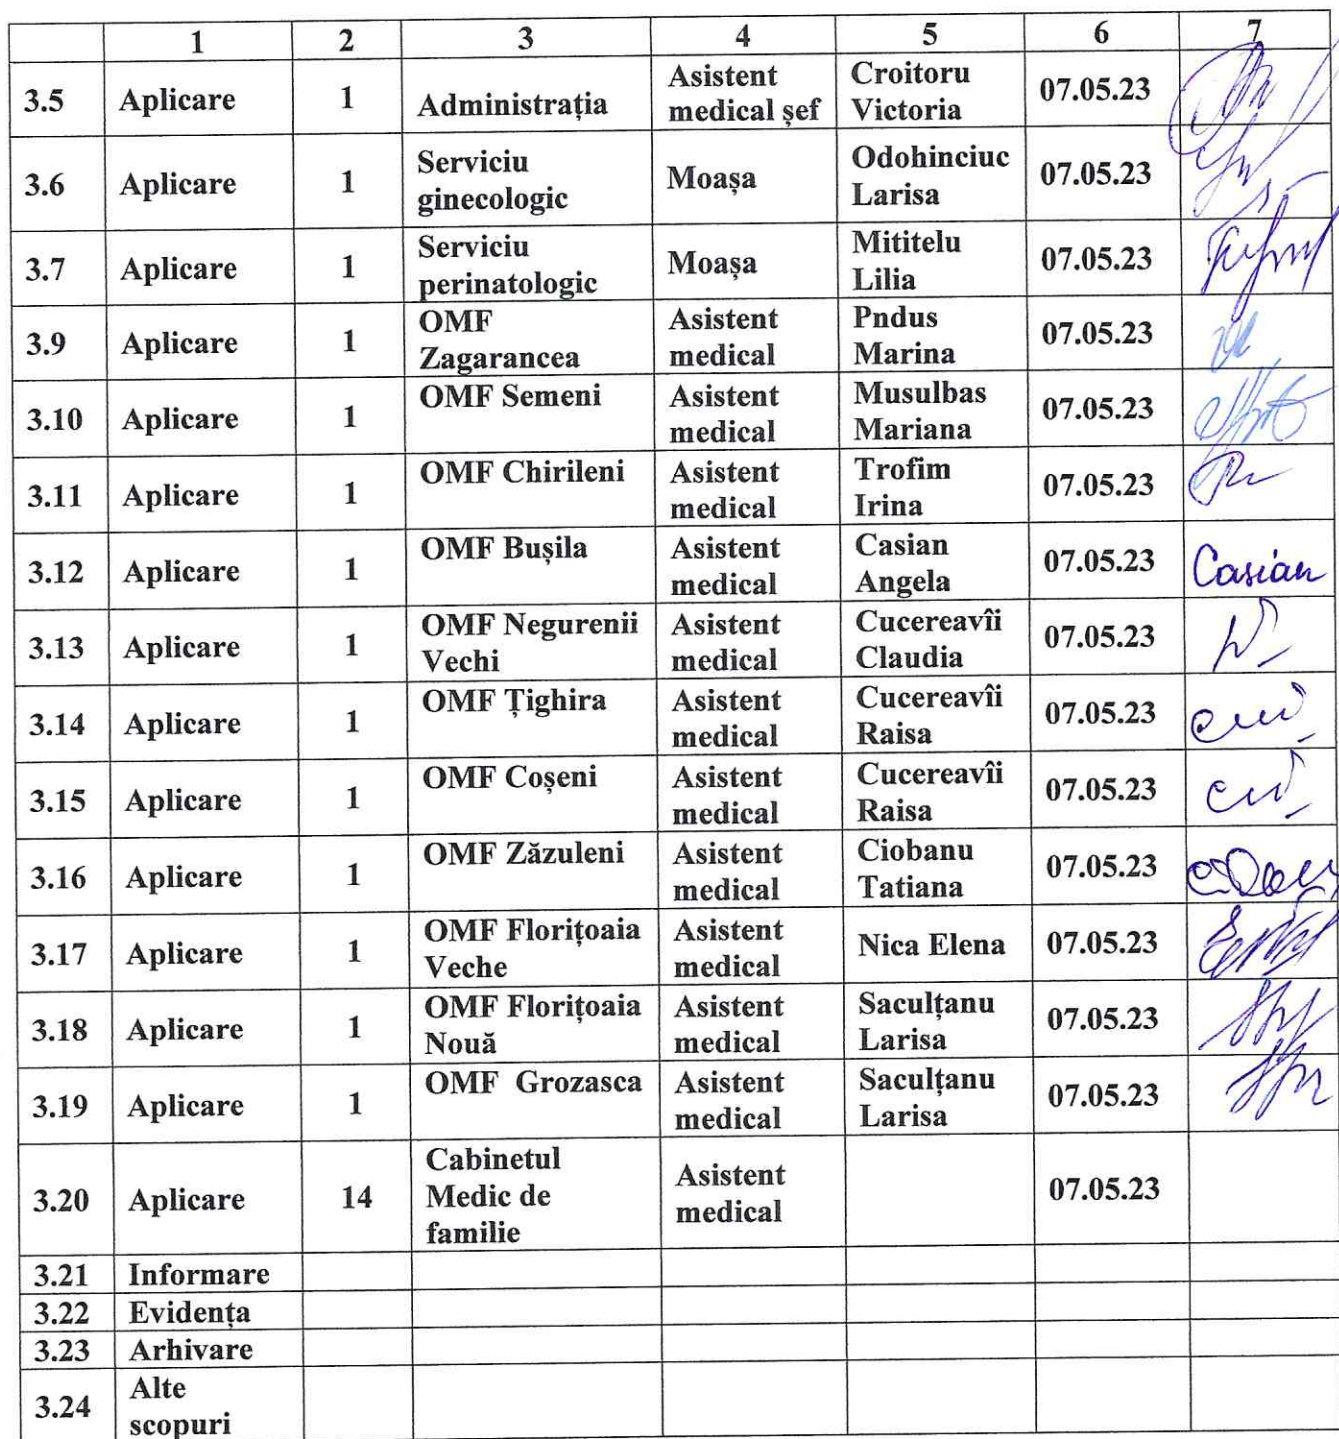 1 2 3 4 5 6 7
3.5 Aplicare 1 Administrația Asistent medical șef Croitoru Victoria 07.05.23
3.6 Aplicare 1 Serviciu ginecologic Moașa Odohinciuc Larisa 07.05.23
3.7 Aplicare 1 Serviciu perinatologic Moașa Mititelu Lilia 07.05.23
3.9 Aplicare 1 OMF Zagarancea Asistent medical Pndus Marina 07.05.23
3.10 Aplicare 1 OMF Semeni Asistent medical Musulbas Mariana 07.05.23
3.11 Aplicare 1 OMF Chirileni Asistent medical Trofim Irina 07.05.23
3.12 Aplicare 1 OMF Bușila Asistent medical Casian Angela 07.05.23 Casian
3.13 Aplicare 1 OMF Negurenii Vechi Asistent medical Cucereavîi Claudia 07.05.23
3.14 Aplicare 1 OMF Țighira Asistent medical Cucereavîi Raisa 07.05.23
3.15 Aplicare 1 OMF Coșeni Asistent medical Cucereavîi Raisa 07.05.23
3.16 Aplicare 1 OMF Zăzuleni Asistent medical Ciobanu Tatiana 07.05.23
3.17 Aplicare 1 OMF Florițoaia Veche Asistent medical Nica Elena 07.05.23
3.18 Aplicare 1 OMF Florițoaia Nouă Asistent medical Saculțanu Larisa 07.05.23
3.19 Aplicare 1 OMF Grozasca Asistent medical Saculțanu Larisa 07.05.23
3.20 Aplicare 14 Cabinetul Medic de familie Asistent medical 07.05.23
3.21 Informare
3.22 Evidența
3.23 Arhivare
3.24 Alte scopuri